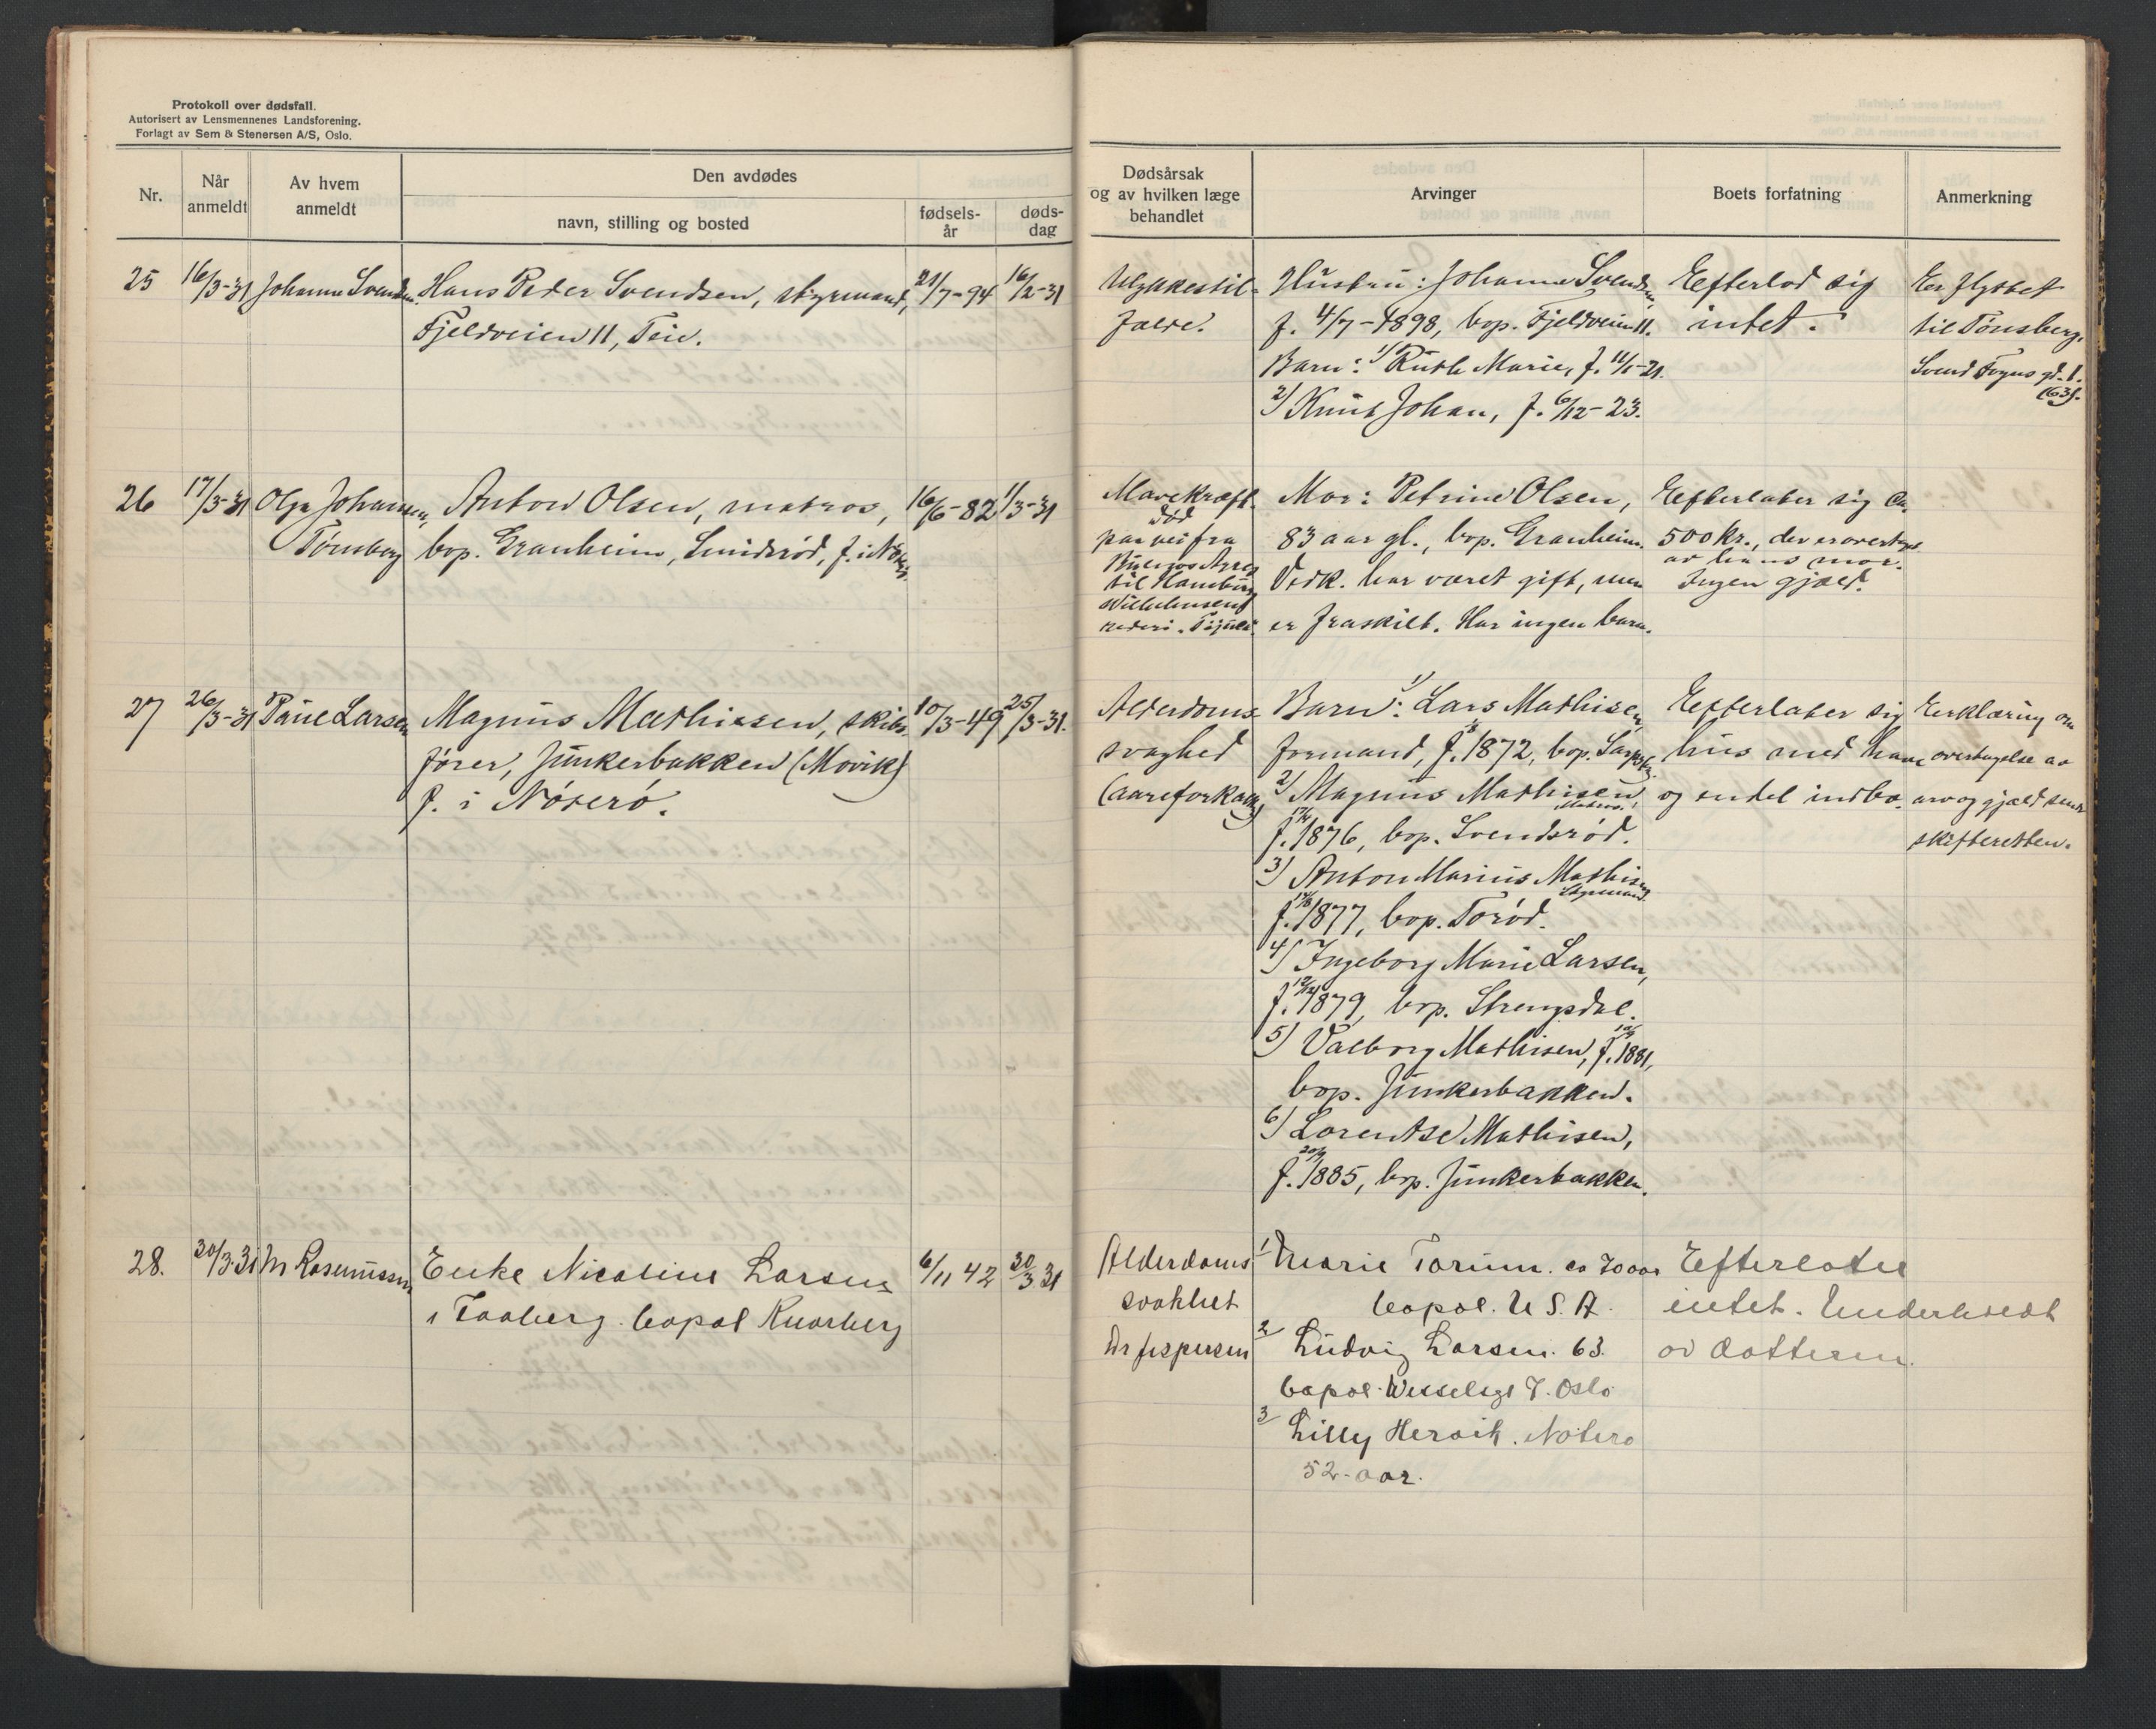 Protokoll over dødsfall.
Autorisert av Lensmennenes Landsforening.
Forlagt av Sem & Stenersen A/S, Oslo.
Nr.
Når anmeldt
Av hvem anmeldt
Den avdødes
navn, stilling og bosted
fødsels-år
døds-dag
Dødsårsak og av hvilken læge behandlet
Arvinger
Boets forfatning
Anmerkning
25
16/3-31
Johanne Svendsen.
Hans Peder Svendsen, styrmand,
Fjeldveien 11, Teie.
21/7-94
16/2-31
Ulykkestil-
fælde.
Hustru: Johanne Svendsen,
f. 4/7-1898, bop. Fjeldveien 11.
Barn: 1) Ruth Marie, f. 11/1-21.
2) Knut Johan, f. 6/12-23.
Efterlod sig
intet.
Er flyttet
til Tønsberg,
Svend Foyns gt. 1.
(63).
26
17/3-31
Olga Johansen,
Tønsberg
Anton Olsen, matros,
bop. Granheim, Smidsrød, f. i Nøterø
16/6-82
1/3-31
Mavekræft.
Død
paa vei fra
Buenos Ayres
til Hamburg
Wilhelmsens
rederi
Mor: Petrine Olsen,
83 aar gl., bop. Granheim.
Vedk. har været gift, men
er fraskilt. Har ingen barn.
Efterlater sig ca.
500 kr., der er overtaget
av hans mor.
Ingen gjæld.
27
26/3-31
Paul Larsen
Magnus Mathissen, skibs-
fører, Junkerbakken (Movik)
f. i Nøterø.
10/3-49
25/3-31.
Alderdoms-
svaghed
(aareforkalkn)
Barn: 1) Lars Mathisen,
formand, f. 1872, bop. Sarpsbg.
2) Magnus Mathisen,
Matros.
f. 1876, bop. Svendsrød.
3) Anton Marius Mathisen,
Styrmand.
f. 1877, bop. Torød.
4) Ingeborg Marie Larsen,
f. 1879, bop. Strengsdal.
5) Valborg Mathisen, f. 1881,
bop. Junkerbakken.
6) Lorentse Mathisen,
f. 1885, bop. Junkerbakken.
Efterlater sig
hus med have
og endel indbo.
Erklæring om
overtagelse av
arv og gjæld sendt
skifteretten.
28.
30/3.31
M Rasmussen
Enke Nicoline Larsen
i Taaberg. bopæl Knarberg
6/11 42
30/3 31
Alderdoms
svakhet
Dr Jespersen
1/ Marie Torum. ca 70 aar
bopæl. U S. A.
2/ Ludvig Larsen. 63.
bopæl. Wesselsgt 7. Oslo
3/ Lilly Hervik. Nøterø
52-aar.
Efterlater
intet. Underholdt
av datteren.